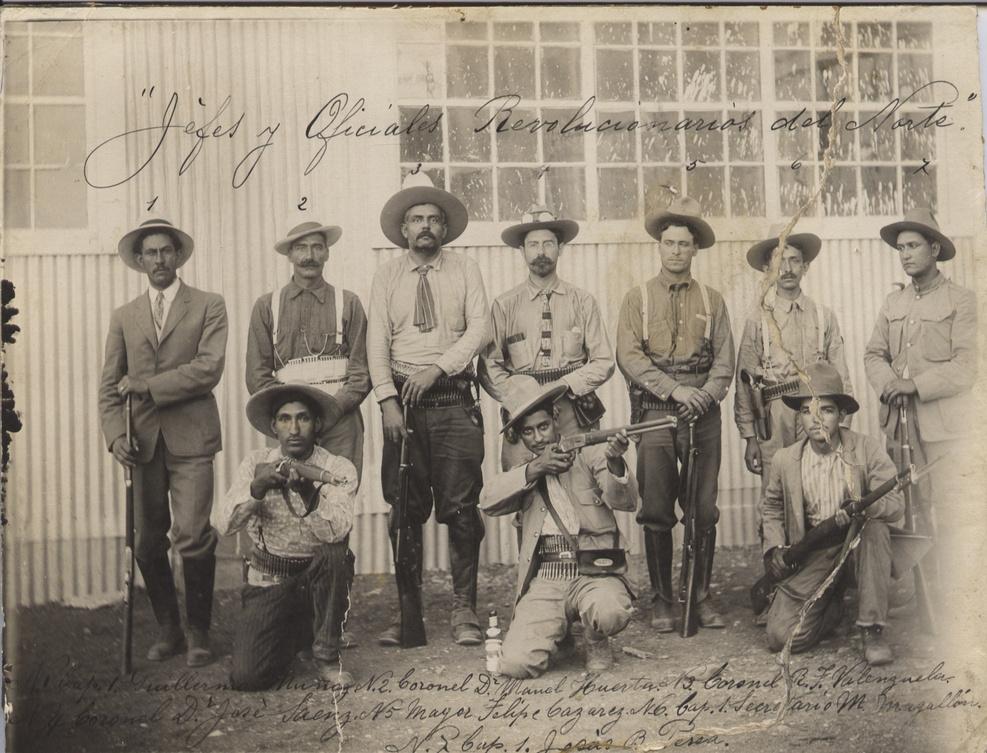 "Jefes y Oficiales Revolucionarios del Norte."
1 2 3 4 5 6 7
N.1 Cap. 1. Guillermo Muñoz. N.2. Coronel Dr. Manuel Huerta. N3. Coronel R. F. Valenzuela.
N.4. Coronel Dr. José Saenz. N5 Mayor Felipe Cazarez. N6. Cap. 1. Secretario M. Magallón.
N.7. Cap. 1. Jesús B. Terea.